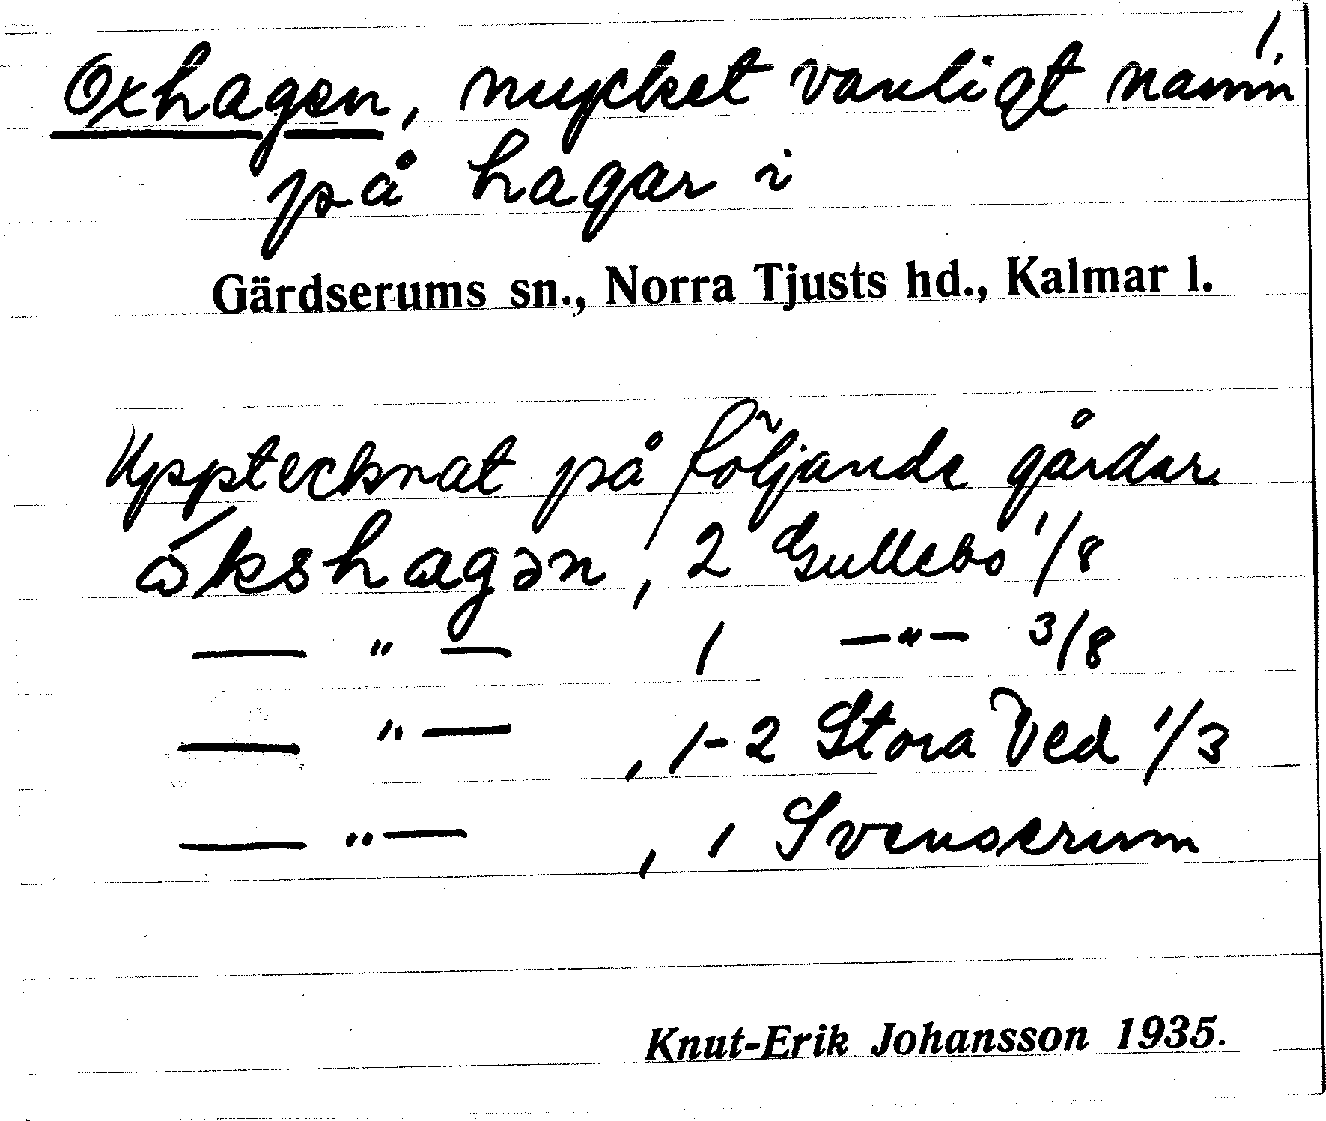 1.
Oxhagen, mycket vanligt namn
på hagar i
Gärdserums sn., Norra Tjusts hd., Kalmar l.
Upptecknat på följande gårdar.
ókshagən, 2 Gullebo 1/8
— " — 1 —"— 3/8
— " — , 1-2 Stora Ved 1/3
— " — , 1 Svenserum
Knut-Erik Johansson 1935.